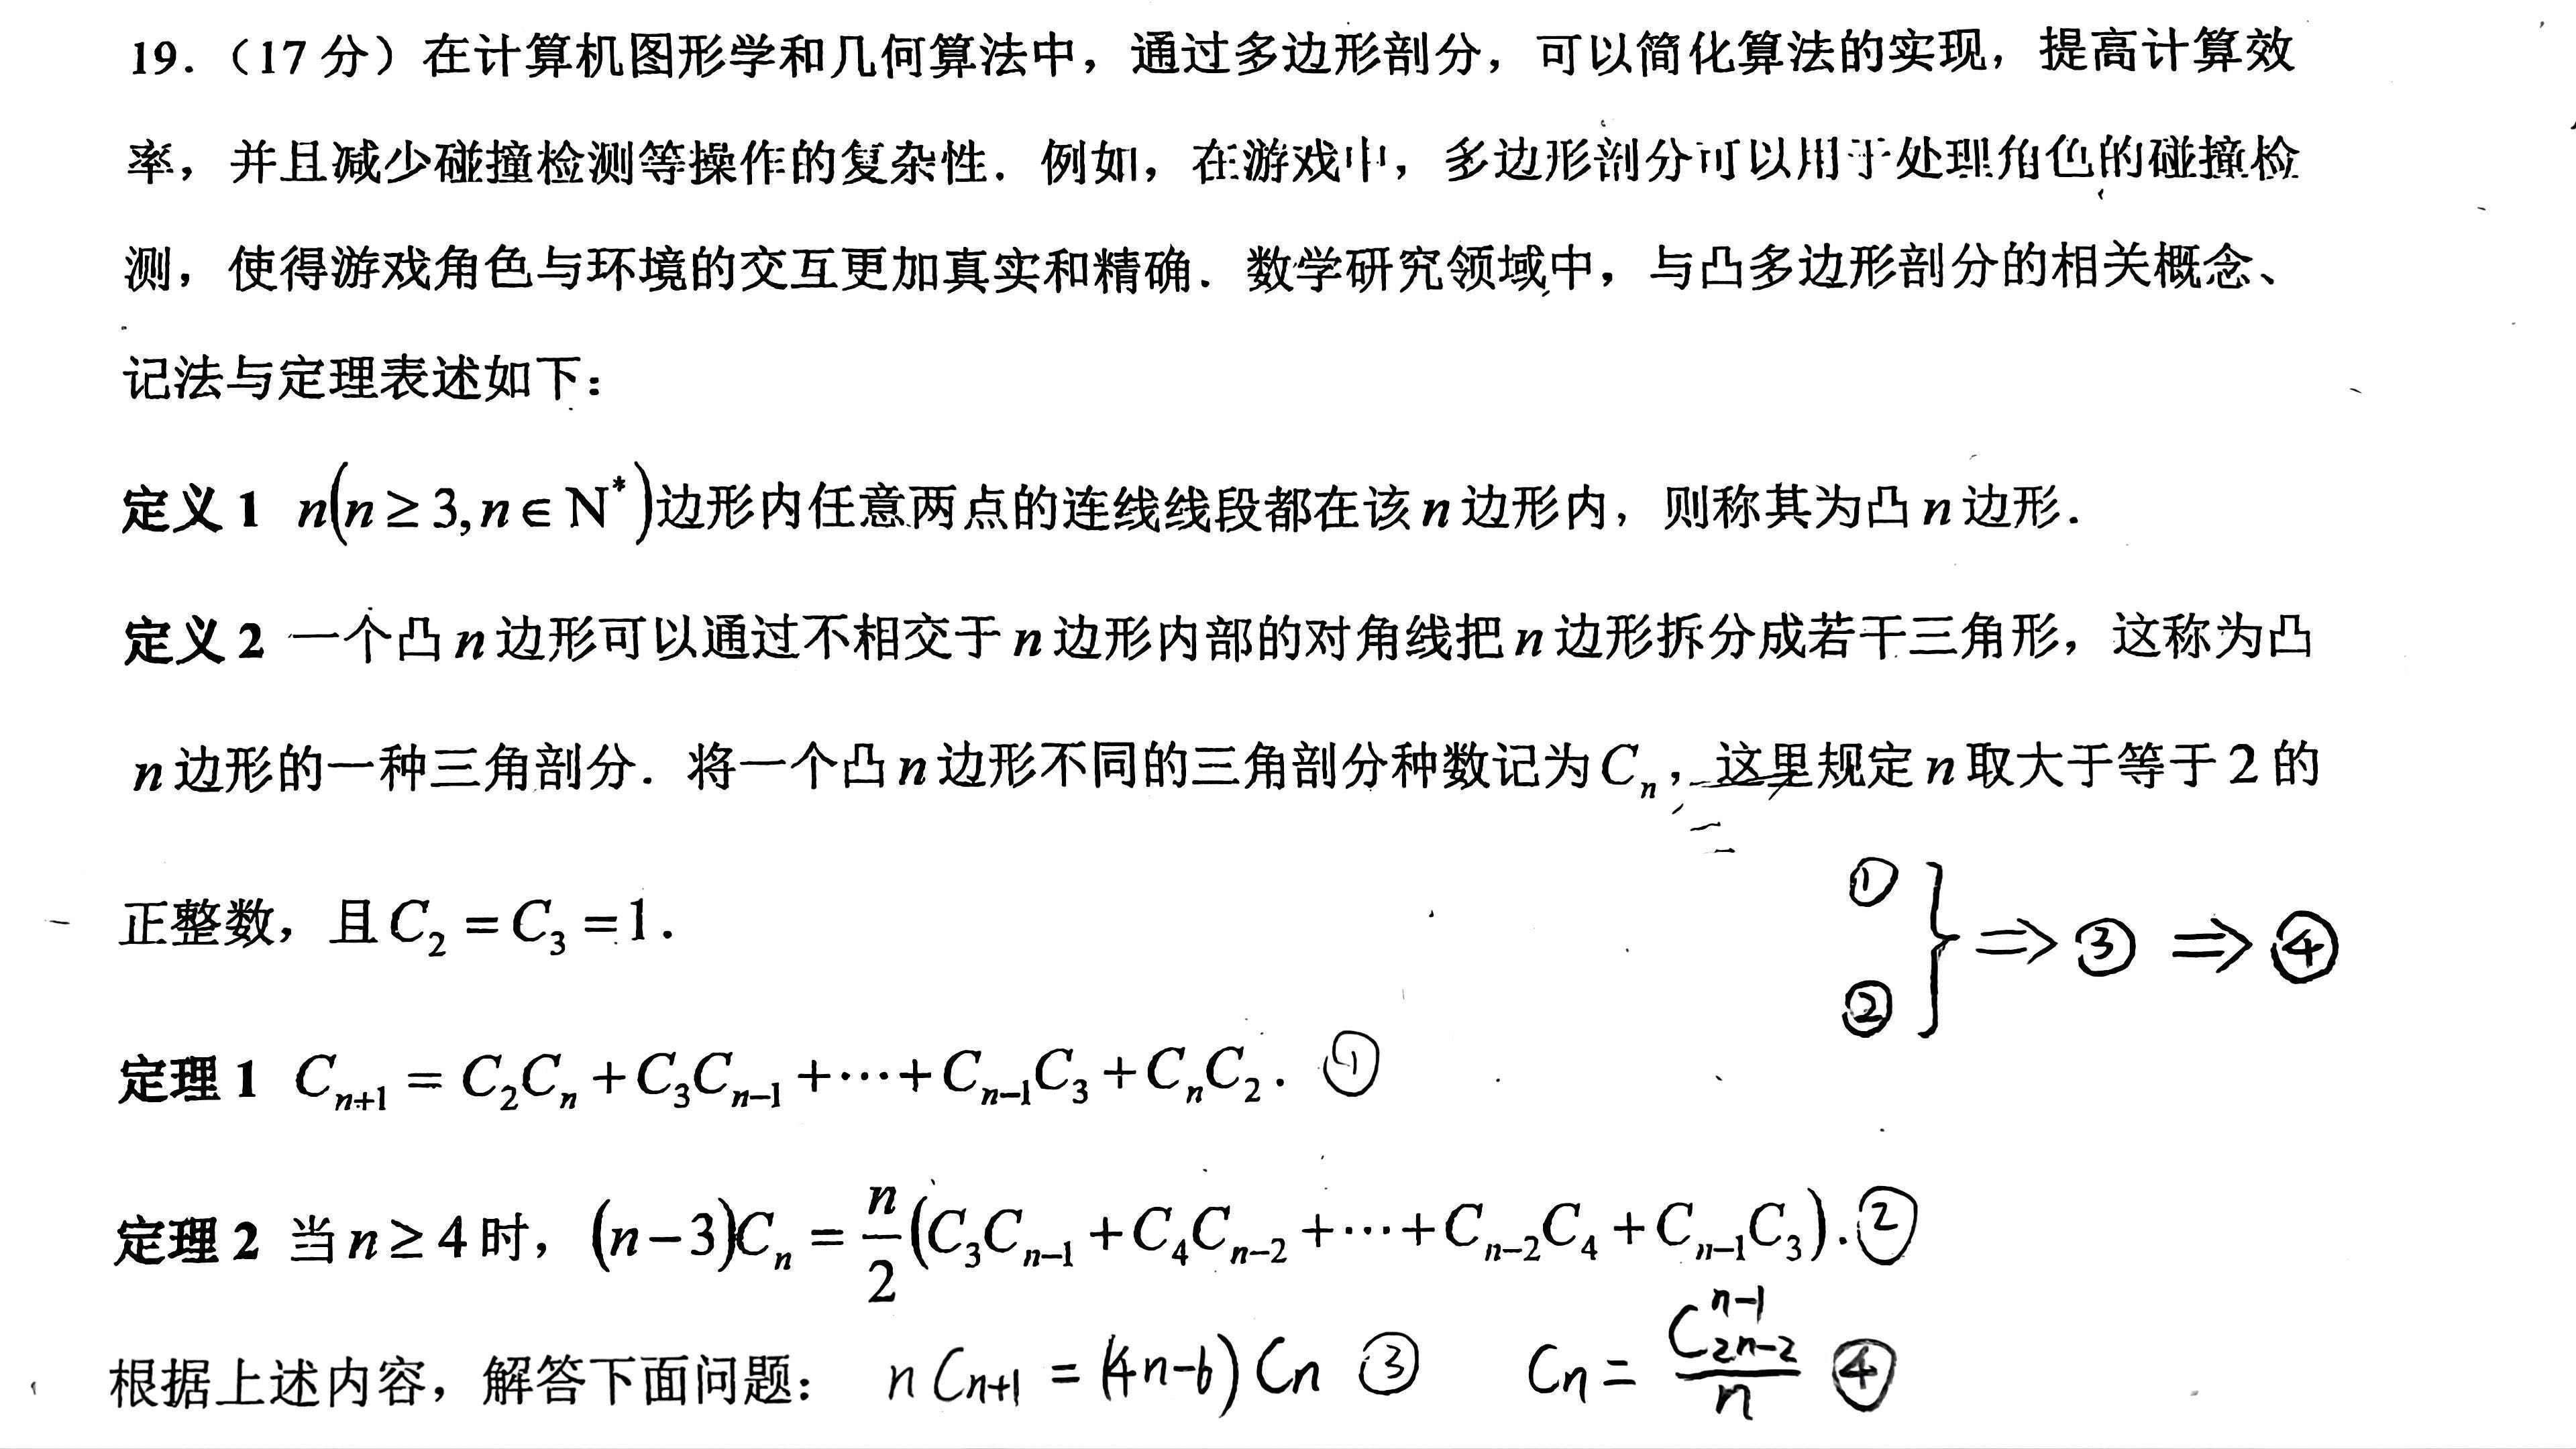 19.（17 分）在计算机图形学和几何算法中，通过多边形剖分，可以简化算法的实现，提高计算效
率，并且减少碰撞检测等操作的复杂性．例如，在游戏中，多边形剖分可以用于处理角色的碰撞检
测，使得游戏角色与环境的交互更加真实和精确．数学研究领域中，与凸多边形剖分的相关概念、
记法与定理表述如下：
定义 1 n(n ≥ 3, n ∈ N*)边形内任意两点的连线线段都在该 n 边形内，则称其为凸 n 边形．
定义 2 一个凸 n 边形可以通过不相交于 n 边形内部的对角线把 n 边形拆分成若干三角形，这称为凸
n 边形的一种三角剖分．将一个凸 n 边形不同的三角剖分种数记为 Cₙ，这里规定 n 取大于等于 2 的
正整数，且 C₂ = C₃ = 1．
① ② } ⇒ ③ ⇒ ④
定理 1 Cₙ₊₁ = C₂Cₙ + C₃Cₙ₋₁ + ⋯ + Cₙ₋₁C₃ + CₙC₂． ①
定理 2 当 n ≥ 4 时，(n−3)Cₙ = n/2 (C₃Cₙ₋₁ + C₄Cₙ₋₂ + ⋯ + Cₙ₋₂C₄ + Cₙ₋₁C₃)．②
根据上述内容，解答下面问题： n Cₙ₊₁ = (4n-6) Cₙ ③ Cₙ = C_{2n-2}^{n-1} / n ④